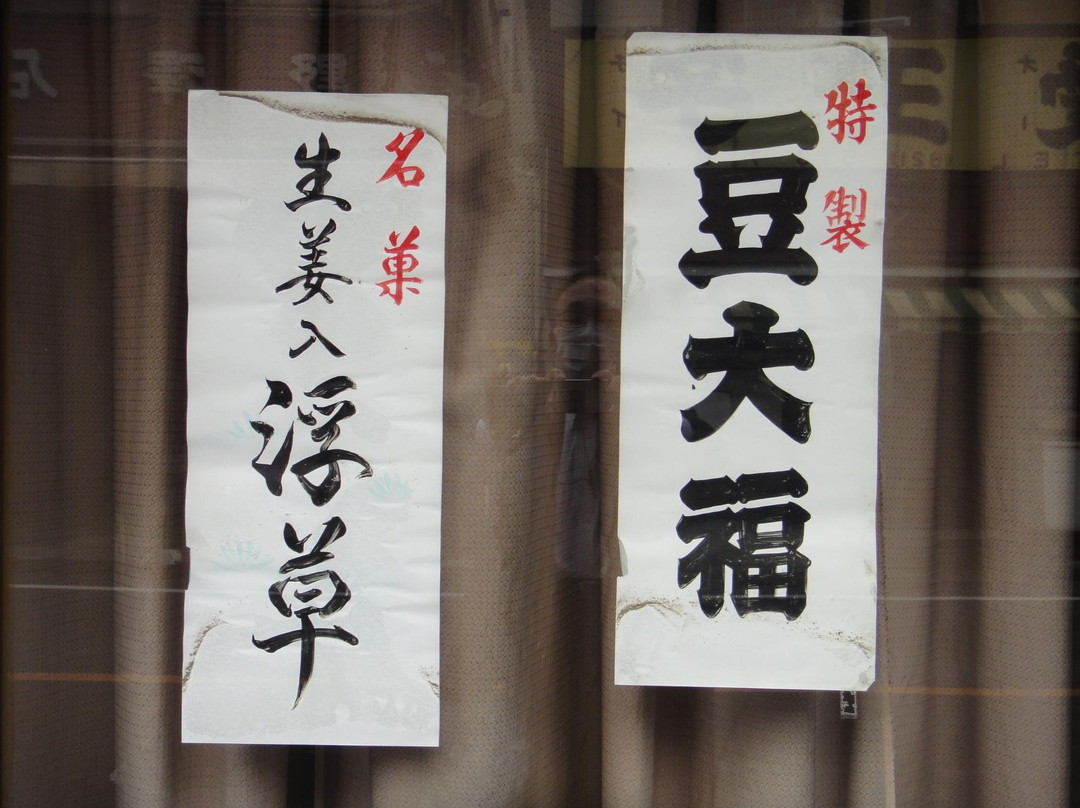 特製
豆大福
名菓
生姜入浮草